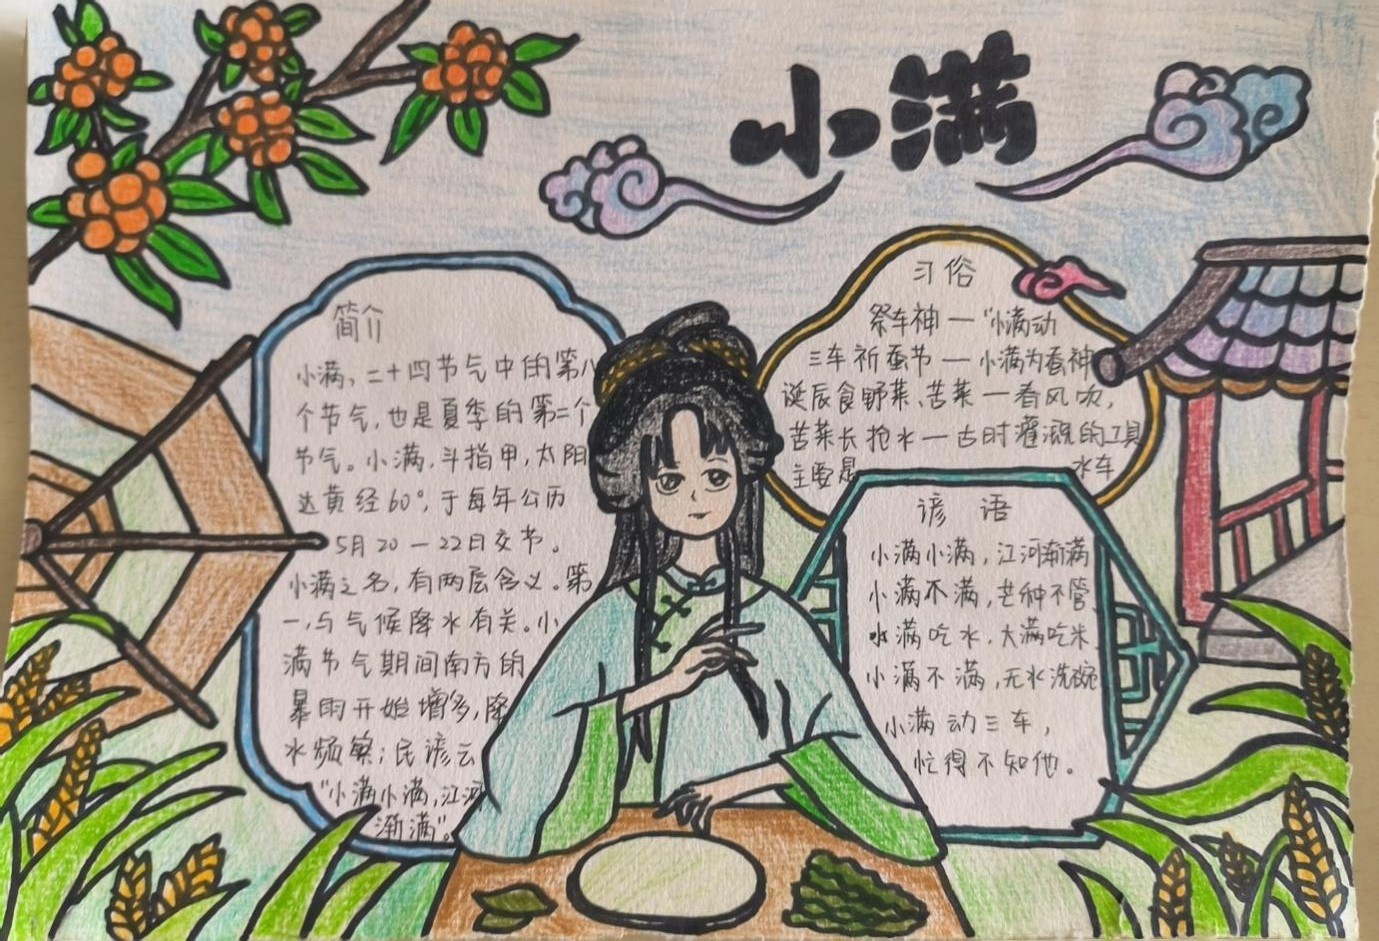 小满
简介
小满，二十四节气中的第八
个节气，也是夏季的第二个
节气。小满，斗指甲，太阳
达黄经60°，于每年公历
5月20—22日交节。
小满之名，有两层含义。第
一，与气候降水有关。小
满节气期间南方的
暴雨开始增多，降
水频繁；民谚云
“小满小满，江河
渐满”。
习俗
祭车神—“小满动
三车祈蚕节—小满为蚕神
诞辰食野菜、苦菜—春风吹，
苦菜长抢水—古时灌溉的工具
主要是 水车
谚语
小满小满，江河渐满
小满不满，芒种不管、
水满吃水，大满吃米
小满不满，无水洗碗
小满动三车，
忙得不知他。